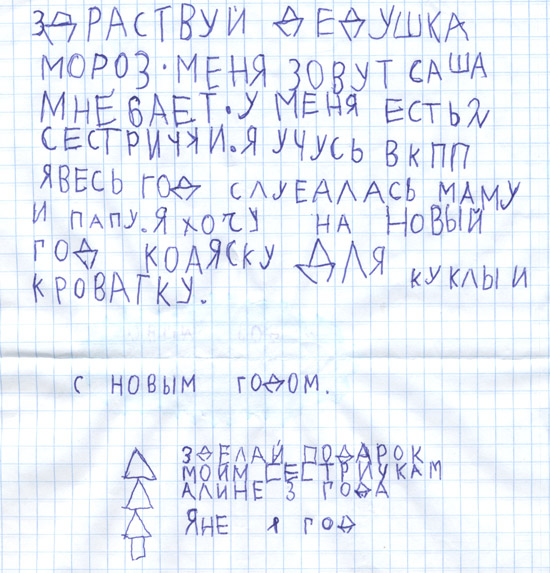 ЗДРАСТВУЙ ДЕДУШКА
МОРОЗ. МЕНЯ ЗОВУТ САША
МНЕ 6 ЛЕТ. У МЕНЯ ЕСТЬ 2
СЕСТРИЧКИ. Я УЧУСЬ В КПП
Я ВЕСЬ ГОД СЛУЕАЛАСЬ МАМУ
И ПАПУ. Я ХОЧУ НА НОВЫЙ
ГОД КОДЯСКУ ДЛЯ КУКЛЫ И
КРОВАТКУ.
С НОВЫМ ГОДОМ.
ЗДЕЛАЙ ПОДАРОК
МОИМ СЕСТРИЧКАМ
АЛИНЕ 3 ГОДА
ЯНЕ 1 ГОД